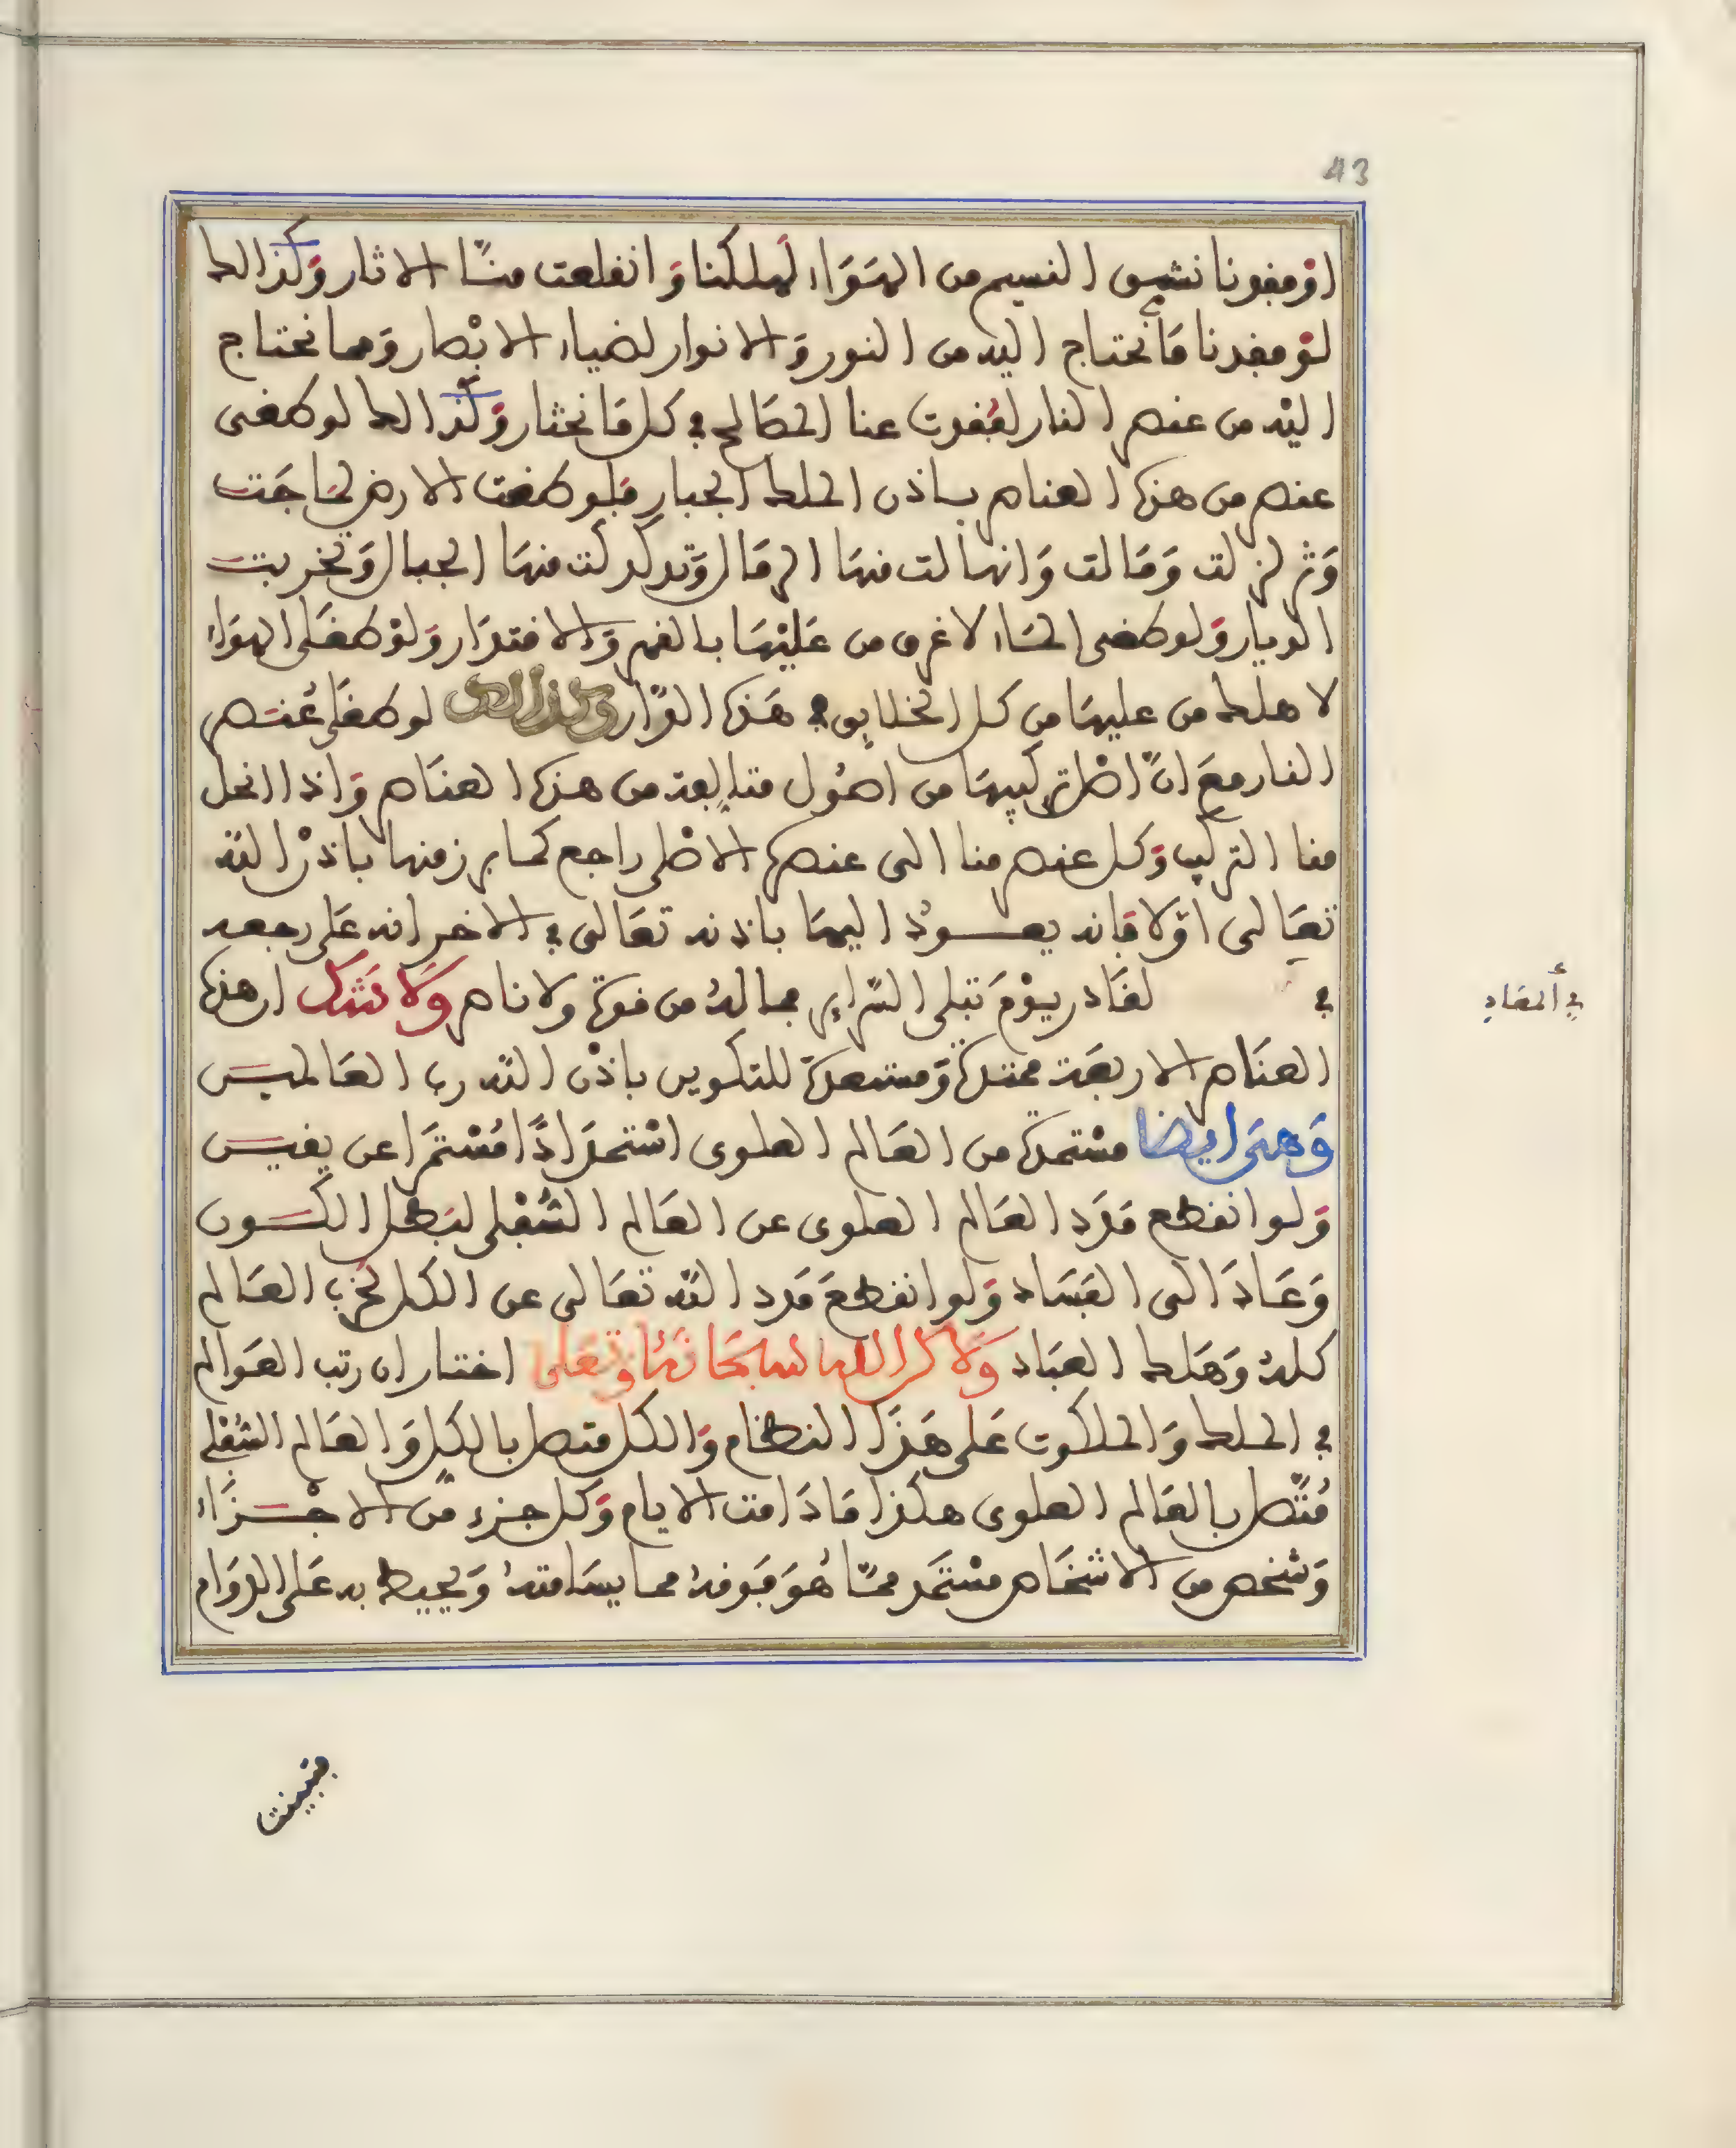 43
او فقدنا نشق النسيم من الهواء لهلكنا وانقلعت منا الاثار وكذالك
لو فقدنا ما نحتاج اليه من النور والانوار لضياء الابصار ومما نحتاج
اليه من عنصر النار لفقدت عنا المصالح في كل ما نختار وكذالك لو طغى
عنصر من هذه العناصر باذن الملك الجبار فلو طغت الارض لماجت
وتزلزلت ومالت وانهالت منها الرمال وتدكدكت منها الجبال وتخربت
الديار ولو طغى الماء لاغرق من عليها بالقهر والاقتدار ولو طغى الهواء
لاهلك من عليها من كل الخلايق في هذه الدار وكذالك لو طغى عنصر
النار مع ان اصل تركيبها من اصول متابعة من هذه العناصر واذا انحل
منا التركيب وكل عنصر منا الى عنصره الاصلي راجع كما برز منها باذن الله
تعالى اولا فانه يعود اليها باذنه تعالى في الاخر انه على رجعه
في المعاد
لقادر يوم تبلى السراير فما له من قوة ولا ناصر ولا شك ان هذه
العناصر الاربعة ممتدة ومستعدة للتكوين باذن الله رب العالمين
وهي ايضا مستمدة من العالم العلوي استمدادا مستمرا عن يقين
ولو انقطع مدد العالم العلوي عن العالم السفلي لبطل الكون
وعاد الى الفساد ولو انقطع مدد الله تعالى عن الكل لخرب العالم
كله وهلك العباد ولاكن الله سبحانه وتعلى اختار ان رتب العوالم
في الملك والملكوت على هذا النظام والكل متصل بالكل والعالم السفلي
متصل بالعالم العلوي هكذا ما دامت الايام وكل جزء من الاجزاء
وشخص من الاشخاص مستمد مما هو فوقه مما يسامته ويحيط به على الدوام
فبينت